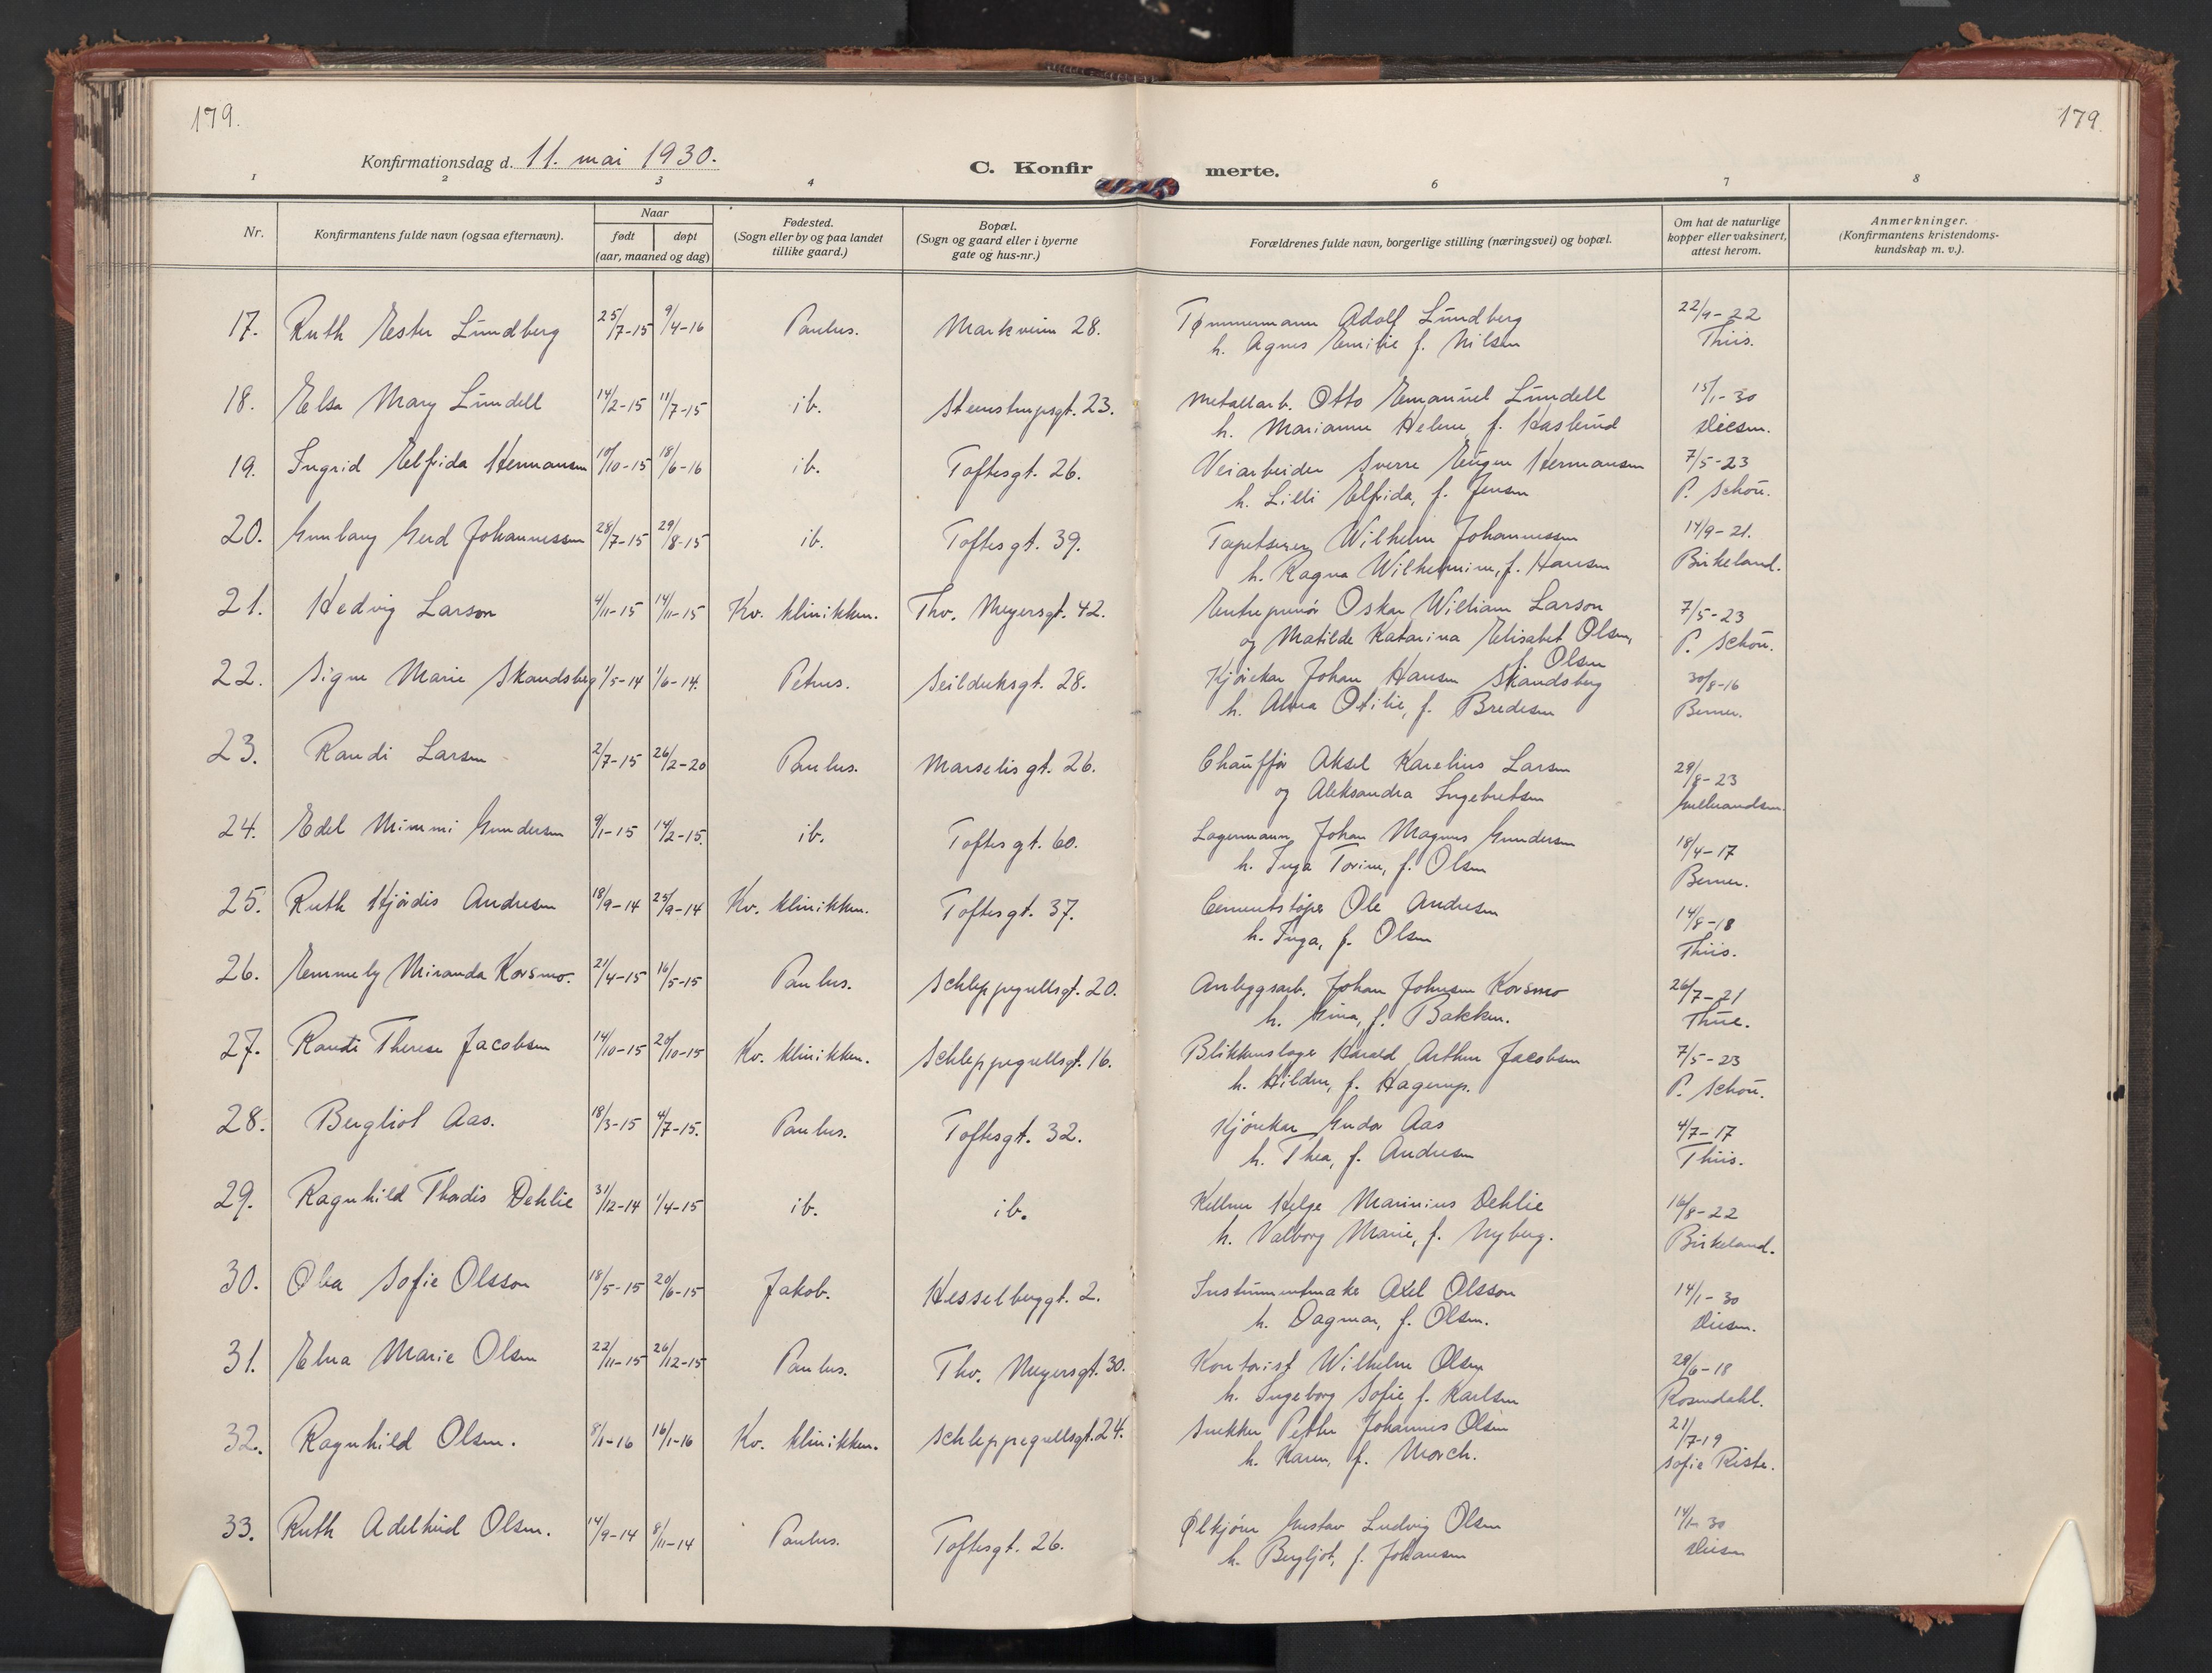 179.
179.
Konfirmationsdag d. 11. mai 1930.
C. Konfirmerte.
1 2 3 4 6 7 8
Nr.
Konfirmantens fulde navn (ogsaa efternavn).
Naar
født døpt
(aar, maaned og dag)
Fødested.
(Sogn eller by og paa landet
tillike gaard.)
Bopæl.
(Sogn og gaard eller i byerne
gate og hus-nr.)
Forældrenes fulde navn, borgerlige stilling (næringsvei) og bopæl.
Om hat de naturlige
kopper eller vaksinert,
attest herom.
Anmerkninger.
(Konfirmantens kristendoms-
kundskap m. v.).
17. Ruth Ester Lundberg 25/7-15 9/4-16 Paulus. Markveien 28. Tømmermann Adolf Lundberg 22/9-22
h. Agnes Emilie f. Nilsen Thiis.
18. Elsa Mary Lundell 14/2-15 11/7-15 ib. Steenstrupsgt. 23. Metallarb. Otto Emanuel Lundell 15/1-30
h. Marianne Helene f. Haslund
19. Ingrid Elfrida Hermansen 10/10-15 18/6-16 ib. Toftesgt. 26. Veiarbeider Sverre Eugen Hermansen 7/5-23
h. Lilli Elfrida, f. Jensen P. Schou.
20. Gunlaug Gerd Johannessen 28/7-15 29/8-15 ib. Toftesgt. 39. Tapetserer Wilhelm Johannessen 14/9-21.
h. Ragna Wilhelmine, f. Hansen Birkeland.
21. Hedvig Larson 4/11-15 14/11-15 Kv. klinikken. Thv. Meyersgt. 42. Entreprenør Oskar William Larson 7/5-23
og Matilde Katarina Elisabet Olsen, P. Schou.
f. Olsen
22. Signe Marie Skandsberg 1/5-14 1/6-14. Petrus. Seilduksgt. 28. Kjørekar Johan Hansen Skandsberg 30/8-16
h. Alma Otilie, f. Bredesen Berner.
23. Randi Larsen 2/7-15 26/2-20 Paulus. Marselisgt. 26. Chauffør Aksel Karelius Larsen 29/8-23
og Aleksandra Ingebretsen Gulbrandsen.
24. Edel Mimmi Gundersen 9/1-15 14/2-15. ib. Toftesgt. 60. Lagermann Johan Magnus Gundersen 18/4-17
h. Inga Torine, f. Olsen Berner.
25. Ruth Hjørdis Andresen 18/9-14 25/9-14 Kv. klinikken. Toftesgt. 37. Cementstøper Ole Andresen 14/8-18
h. Inga, f. Olsen Thiis.
26. Emmely Miranda Korsmo. 21/4-15 16/5-15 Paulus. Schleppegrellsgt. 20. Anleggsarb. Johan Johnsen Korsmo 26/7-21
h. Gina, f. Bakken. Thue.
27. Randi Therese Jacobsen 14/10-15 20/10-15 Kv. klinikken. Schleppegrellsgt. 16. Blikkenslager Harald Arthur Jacobsen 7/5-23
h. Hildur, f. Hagerup. P. Schou.
28. Bergliot Aas. 18/3-15 4/7-15. Paulus. Toftesgt. 32. Kjørekar Gudor Aas 4/7-17
h. Thea, f. Andresen Thiis.
29. Ragnhild Thordis Dehlie 31/12-14 1/4-15 ib. ib. Kellner Helge Marinius Dehlie 16/8-22
h. Valborg Marie, f. Nyberg. Birkeland.
30. Olea Sofie Olsson 18/5-15 20/6-15 Jakob. Hesselberggt. 2. Instrumentmaker Axel Olsson 14/1-30
h. Dagmar, f. Olsen.
31. Elna Marie Olsen 22/11-15 26/12-15 Paulus. Thv. Meyersgt. 30. Kontorist Wilhelm Olsen 28/6-18
h. Ingeborg Sofie f. Karlsen Rosendahl.
32. Ragnhild Olsen. 8/1-16 16/1-16 Kv. klinikken. Schleppegrellsgt. 24. Snekker Petter Johannes Olsen 21/7-19
h. Karen, f. Morch. Sofie Riste.
33. Ruth Adelheid Olsen. 14/9-14 8/11-14 Paulus. Toftesgt. 26. Ølkjører Gustav Ludvig Olsen 14/1-30
h. Bergljot, f. Johansen